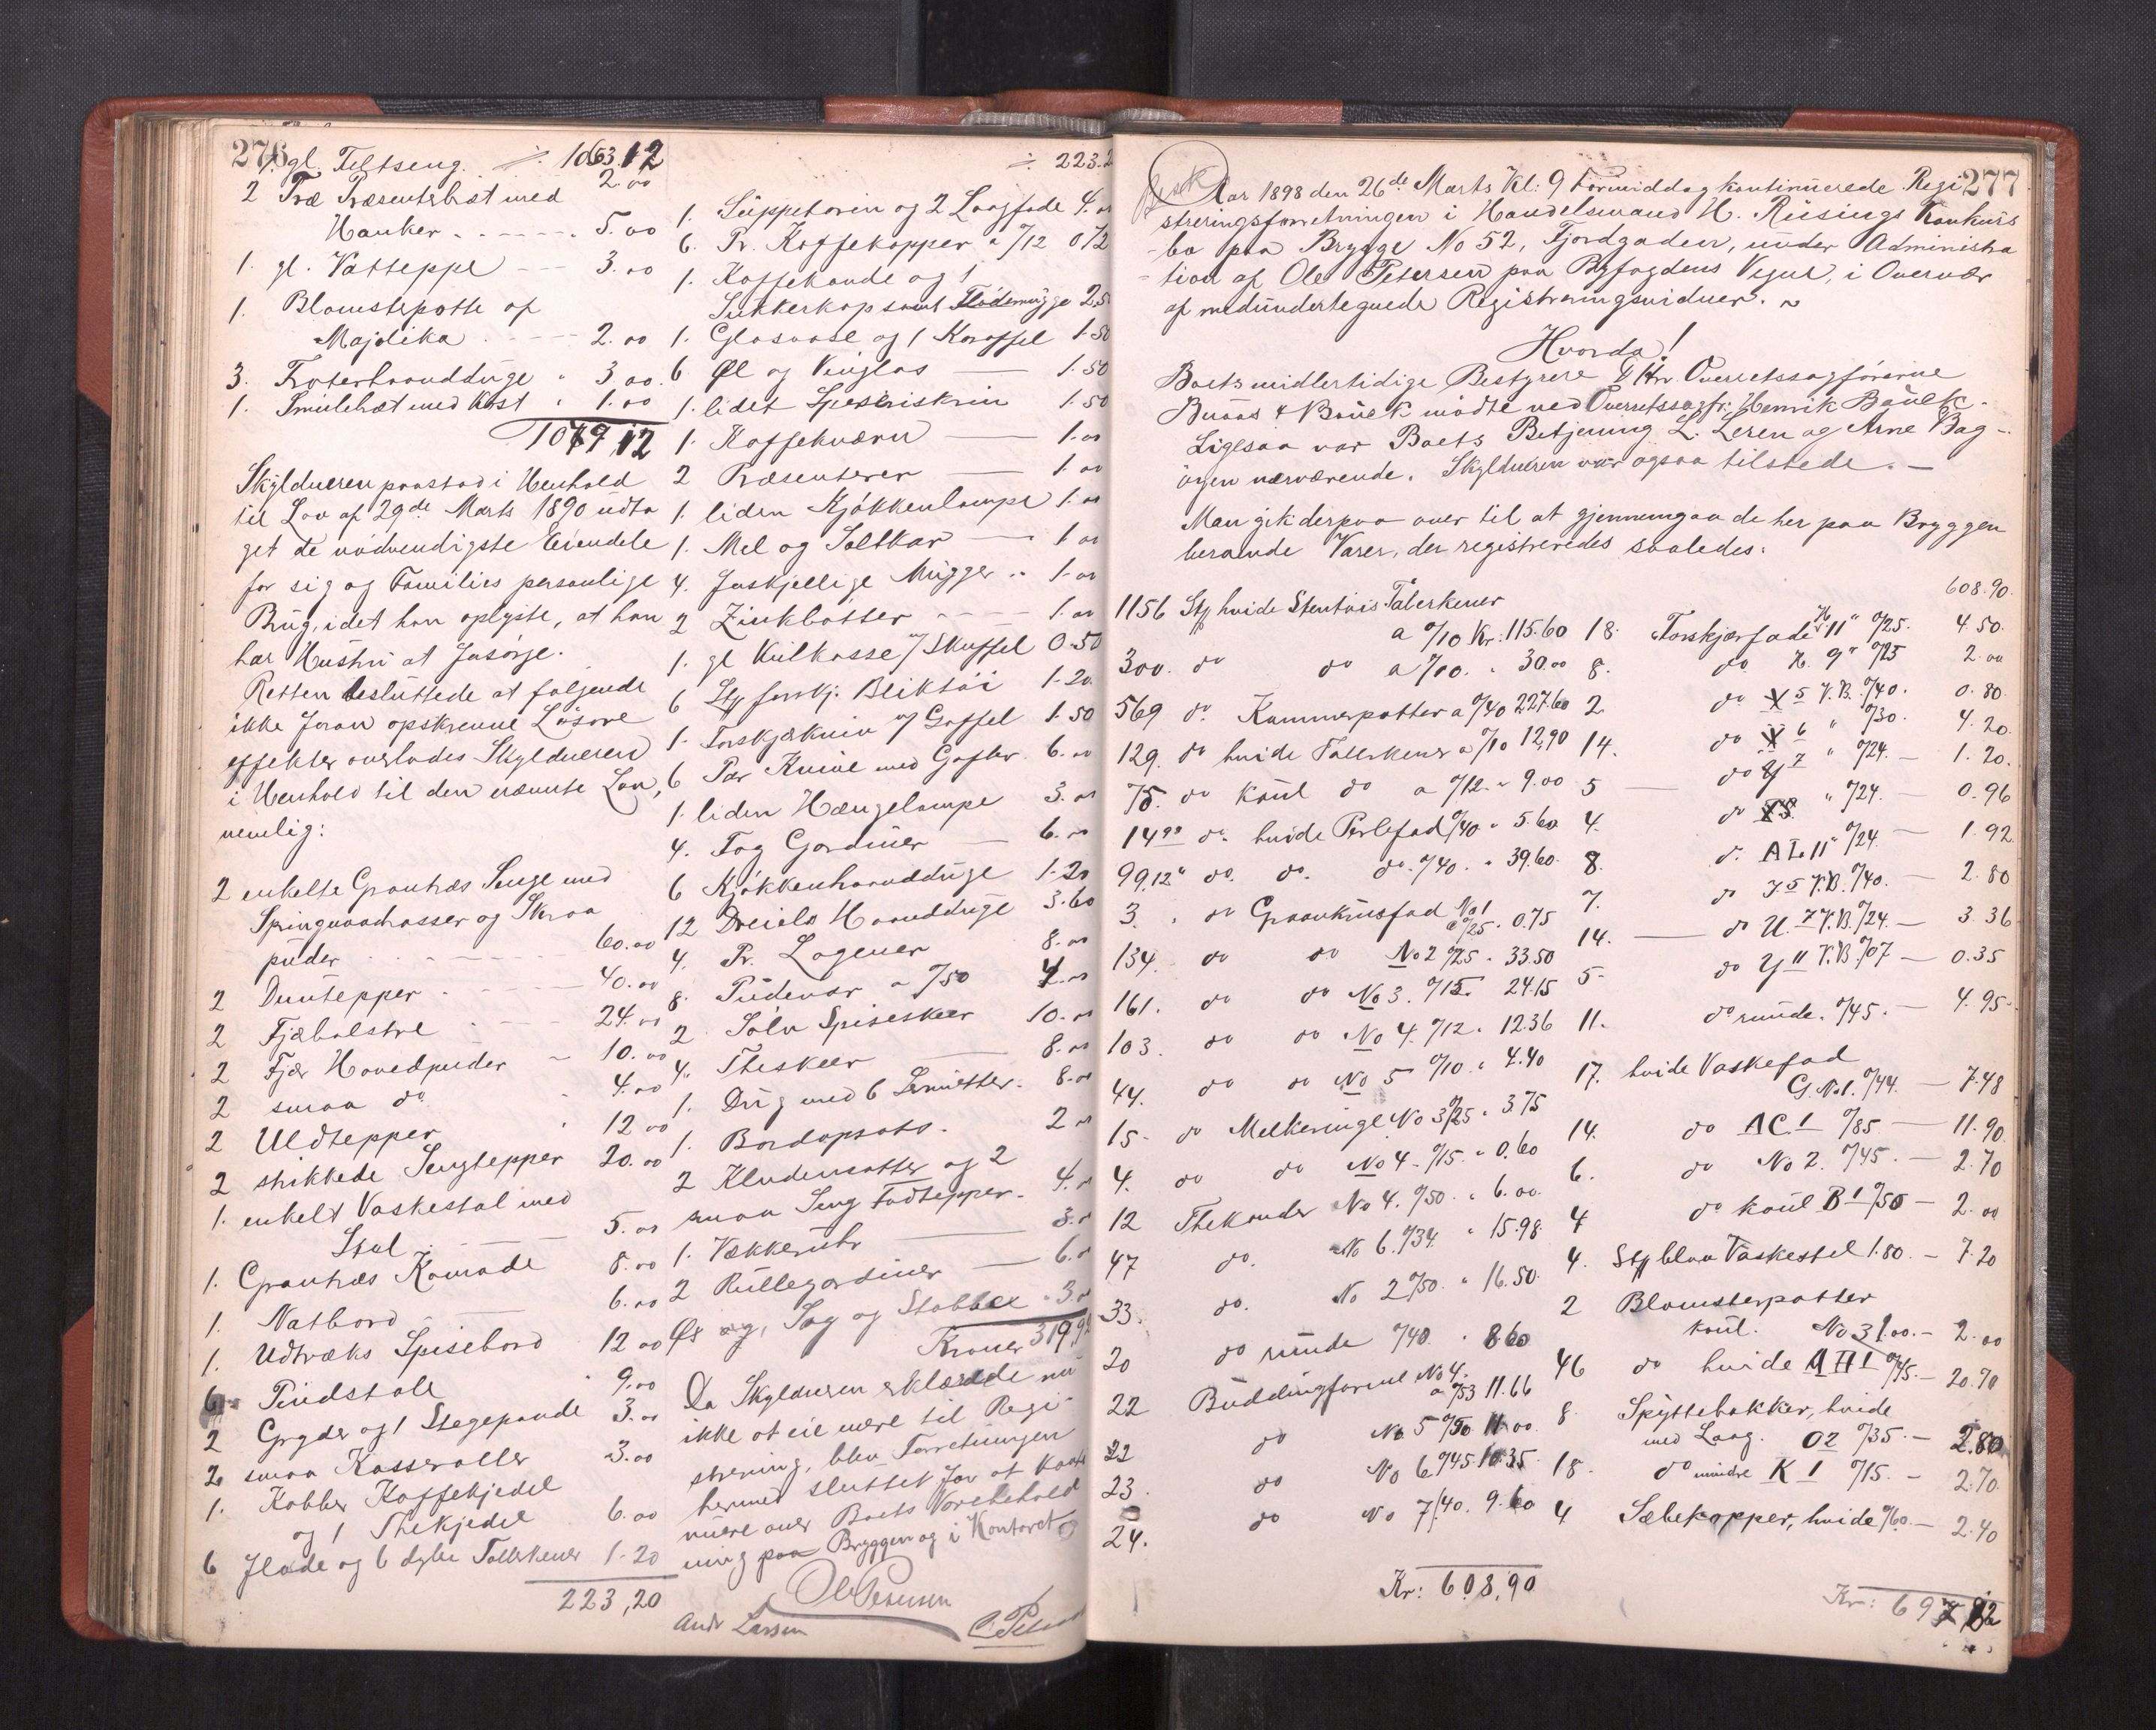 276
1. gl. Feltseng. ./. 1063.12
2.00
2 Træ Præsenterbræt med
Hanker . . - - - - - . 5.00
1. gl. Vatteppe - - - 3.00
1. Blomsterpotte af
Majolika . - - - - 2.00
3. Froterhaandduge " 3.00.
1. Smulebræt med Kost " 1.00
1079 12
Skyldneren paastod i Henhold
til Lov af 29de Marts 1890 udta
get de nødvendigste Eiendele
for sig og Families personlige
Brug, idet han oplyste, at han
har Hustru at forsørge.
Retten besluttede at følgende
ikke foran opskrevne Løsøre
effekter overlades Skyldneren
i Henhold til den nævnte Lov,
nemlig:
2 enkelte Grantræs Senge med
Springmadrasser og Skraa
puder . . - - - - - 60.00
2 Duntepper - - - - - 40.00
2 Fjæbolstre - - - - 24.00
2 Fjær Hovedpuder - 10.00
2 smaa do " 4.00
2 Uldtepper " 12.00
2 strikkede Sengtepper 20.00
1. enkelt Vaskestol med
Stol - - - 5.00
1. Grantræs Komode 8.00
1. Natbord - - - 6.00
1. Udtræks Spisebord 12.00
6 Pindstole " 9.00
2 Gryder og 1 Stegepande 3.00
2 smaa Kasseroller 3.00
1. Kobber Kaffekjedel
og 1 Thekjedel 6.00
6 flade og 6 dybe Tallerkener 1.20
223,20
./. 223.2
1. Suppeterin og 2 Laagfade 4.00
6. Pr. Kaffekopper a 0/12 0 72
1. Kaffekande og 1
Sukkerkop samt Flødemugge 2.50
1. Glasvase og 1 Karaffel 1.50
6 Øl og Vinglas — 1.50
1. lidet Speseriskrin 1.50
1. Kaffekværn — 1.00
2 Præsenterer — 1.00
1. liden Kjøkkenlampe 1.00
1. Mel og Saltkar — 1.00
4. forskjellige Mugger " 1.00
2 Zinkbøtter - - - - 1.00
1. gl Kulkasse m/ Skuffel 0.50
6 Stk forskj. Bliktøi 1.20
1. Forskjærkniv m/ Gaffel 1.50
6 Par Knive med Gafler 6.00
1. liden Hængelampe 3.00
4. Fag Gardiner — 6.00
6 Kjøkkenhaandduge 1.20
12 Dreiels Haandduge 3.60
4. Pr. Lagener 8.00
8. Pudevar a 0/50 4.00
2 Sølv Spiseskeer 10.00
4. Theskeer — 8.00
1. Dug med 6 Servietter. 8.00
1. Bordopsats. 2.00
2 Kludematter og 2
smaa Seng Fodtepper. 4.00
1. Vækkeruhr — 3.00
2 Rullegardiner — 6.00
Øx og, Sag og Stabbe " 3.00
Kroner 319,92
Da Skyldneren erklærede nu
ikke at eie mere til Regi-
strering, blev Forretningen
hermed sluttet for at konti
nuere over Boets Varebehold
ning paa Bryggen og i Kontoret
Ole Petersen
Andr Larsen
277
Aar 1898 den 26de Marts Kl: 9 Formiddag kontinuerede Regi
streringsforretningen i Handelsmand H. Riisings Konkurs
-bo paa Brygge No 52, Fjordgaden, under Administra
-tion af Ole Petersen paa Byfogdens Vegne, i Overvær
af medundertegnede Registreringsvidner. ~
Hvorda!
Boets midlertidige Bestyrere D'Hrr. Overretssagførerne
Buaas & Bauck mødte ved Overretssagfr: Henrik Bauck.
Ligesaa var Boets Betjening L. Leren og Arne Bag-
øien nærværende. Skyldneren var ogsaa tilstede. —
Man gik derpaa over til at gjennemgaa de her paa Bryggen
beroende Varer, der registreredes saaledes:
1156 Stk hvide Stentøis Talerkener
a 0/10 Kr: 115.60
300. do do a 0/10. " 30.00
569 do Kammerpotter a 0/40 227.60
129. do hvide Tallerkener a 0/10 12,90
75. do koul do a 0/12. " 9.00
14 do hvide Perlefad 0/40 " 5.60
99,12" do. do. do. 0/40. " 39.60.
3. " do Graakrusfad No 1
0/25 " 0.75
134. do do No 2 0/25 " 33.50
161. do do No 3. 0/15. 24.15
103. do do No 4. 0/12. 12.36
44. do do No 5 0/10. " 4.40
15 - do Melkeringe No 3 0/25 " 3.75
4. do do No 4 - 0/15. " 0.60
12 Thekander No 4. 0/50. " 6.00
47 do. No 6. 0/34 " 15.98
33. do. No 2 0/50. " 16.50
20 do runde 0/40. " 8.00
22 Buddingforme No 4.
a 0/53 11.66
22 do No 5 0/50 11.00
23. do No 6. 0/45 10.35
24. do No 7/40. 9.60
Kr: 608.90
608.90.
18. Forskjærfade 11" 0/25. 4.50.
8. do H. 9" 0/25 2.00
2. do X 5 K.B. 0/40. 0.80
14. do X 6 " 0/30. 4.20
5 — do Y 7 " 0/24. — 1.20.
4. do " 0/24. — 0.96
8. do AL 11" 0/24. — 1.92
7. do 5 K.B. 0/40. — 2.80
14. — do U. 7 K.B. 0/24. — 3.36
5 - do Y 11 K.B. 0/07 — 0.35
11. do runde. 0/45. — 4.95
17. hvide Vaskefad
G. No 1. 0/44. — 7.48
14. do AC. 1 0/85 — 11.90
6. do No 2. 0/45. — 2.70
4 do koul B 1 0/50 — 2.00
4. Stk blaa Vaskestel 1.80. — 7.20
2 Blomsterpotter
koul. No 3 1.00. — 2.00
46 do hvide A H 1 0/45. — 20.70
8. Spyttebakker, hvide
med Laag. 02 0/35. — 2.80
18. do mindre K 1 0/15. — 2.70.
4 Sæbekopper, hvide 0/60. — 2.40